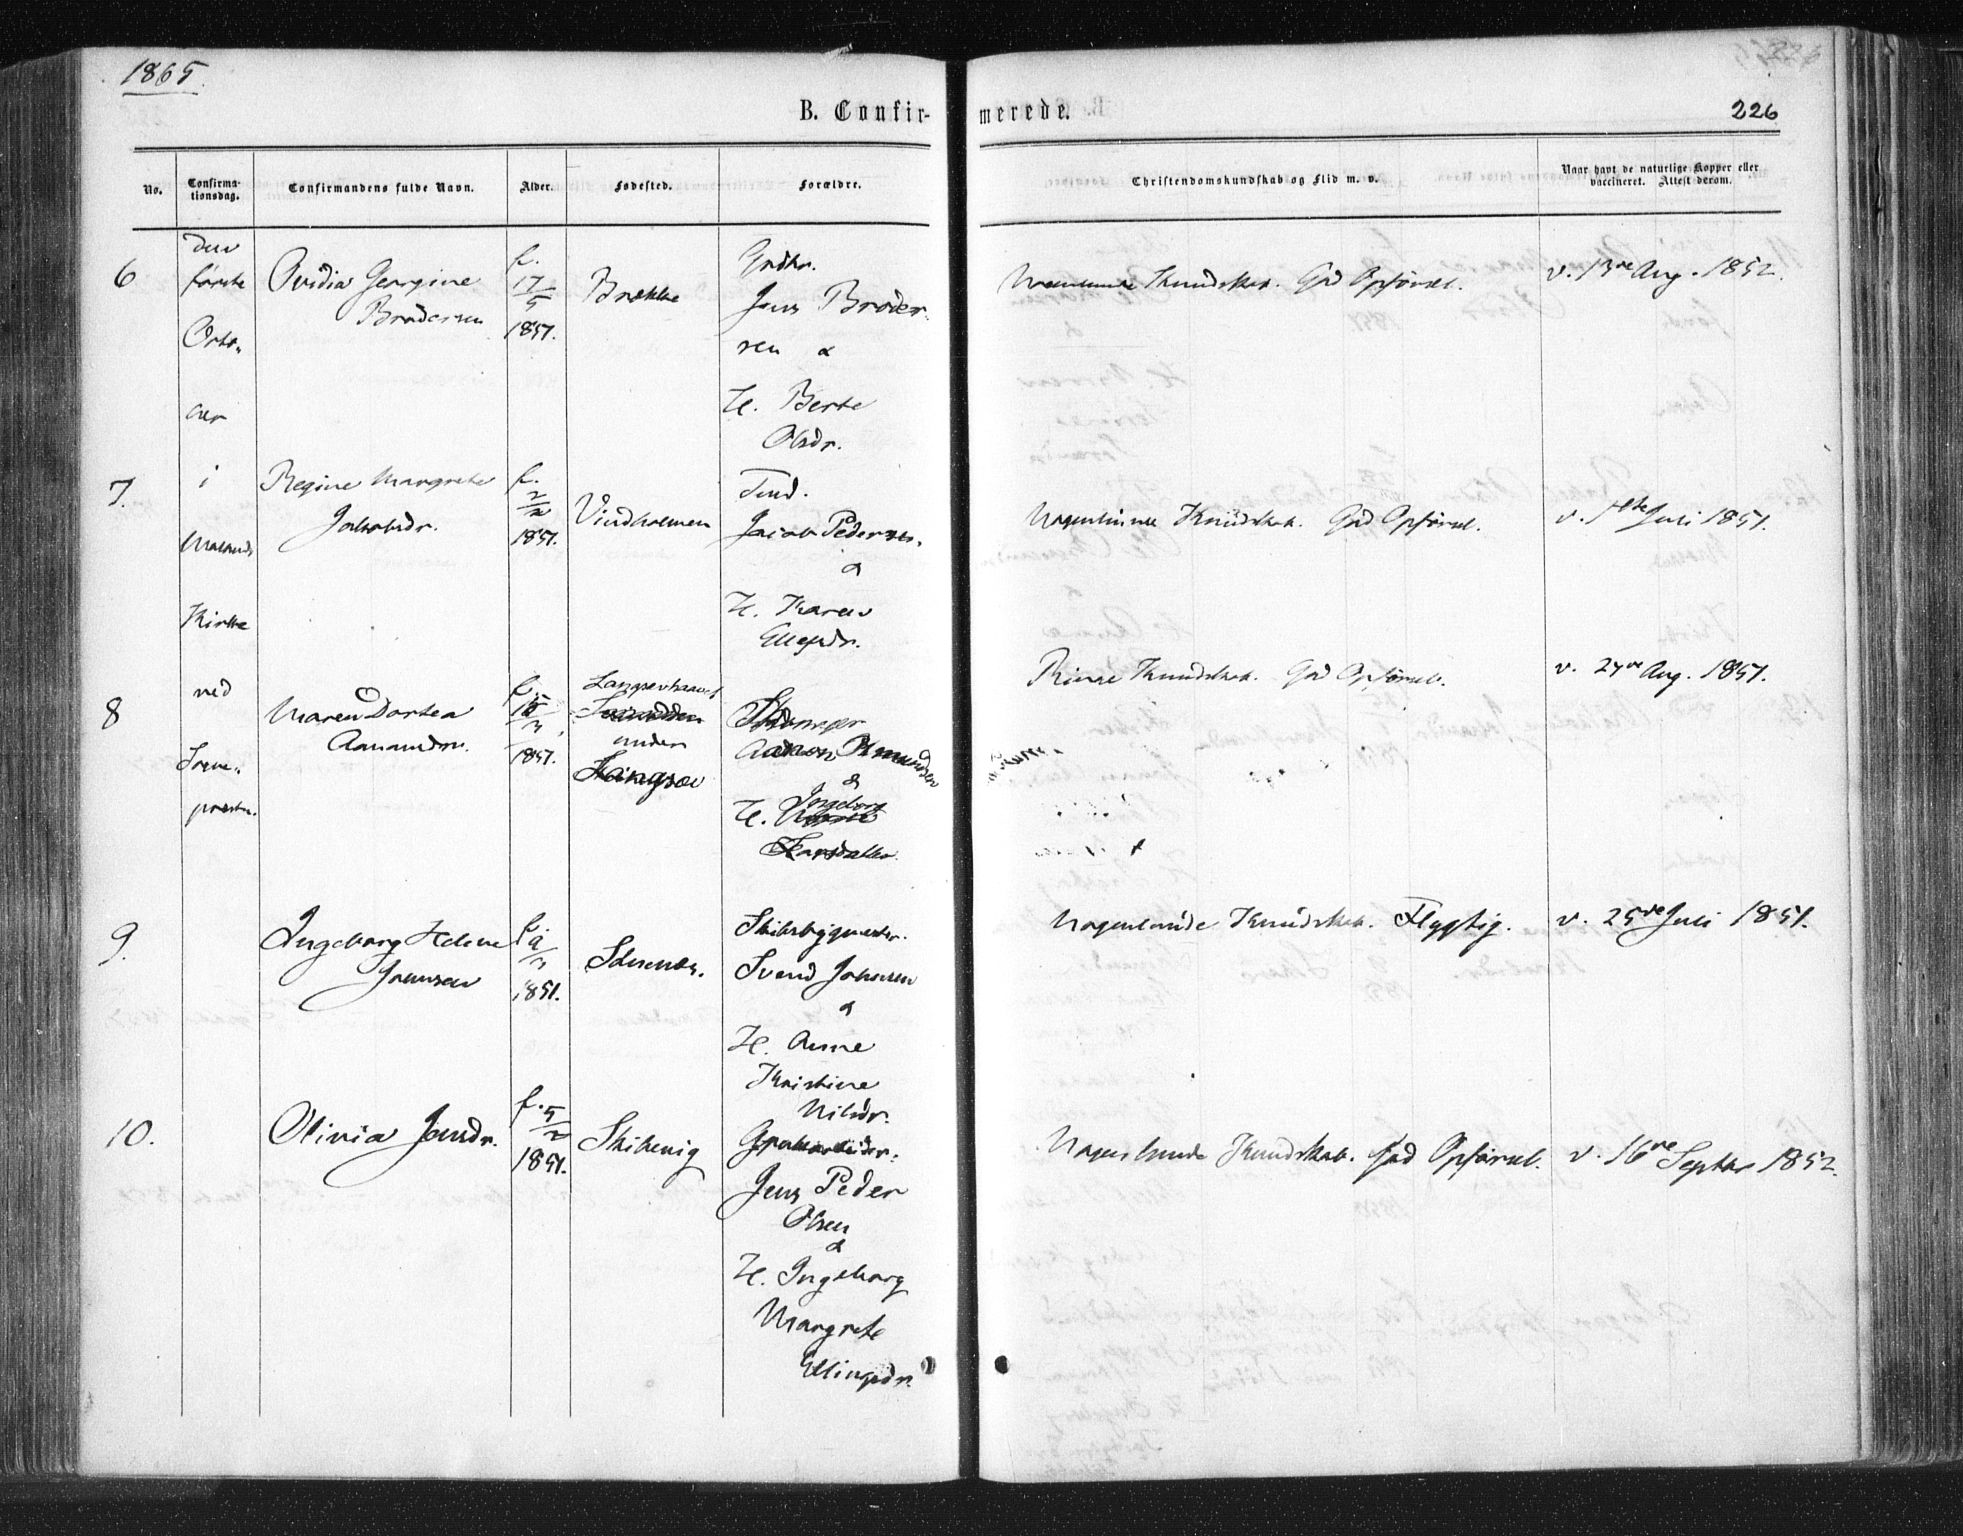 1865.
B. Confir-
merede.
226
No.
Confirma-
tionsdag.
Confirmandens fulde Navn.
Alder.
Fødested.
Forældre.
Christendomskundskab og Flid m. v.
Naar havt de naturlige Kopper eller
vaccineret. Attest derom.
den
første
i
Kirke
ved
6
Ovidia Georgine
Brodersen
f.
17/5
1851.
Brække
Jens Broder-
sen &
H. Berte
Olsdr.
Nogenlunde Kundskab. God Opførsel.
v. 13de Aug. 1852.
7.
Regine Margrete
Jakobsdr.
f.
1851.
Vindholmen
Jacob Pedersen
&
H. Karen
Ellefsdr.
Nogenlunde Kundskab. God Opførsel.
Juli 1851.
8
Maren Dortea
f.
1851.
under
Aanon Amundsen
&
H. Ingeborg
God Opførsel.
v. 27de Aug. 1851.
9.
Ingeborg Helene
Joensen
f.
9/3
1851.
Skibsbygmester.
Svend Johnsen
&
H. Anne
Kristine
Nilsdr.
Nogenlunde Kundskab. Flygtig.
v. 25de Juli 1851.
10.
Olivia Jensdr.
f. 5/2
1851.
Skibevig
Jens Peder
Olsen
&
H. Ingeborg
Margrete
Ellingsdr.
Nogenlunde Kundskab. God Opførsel.
v. 16de Septbr 1852.